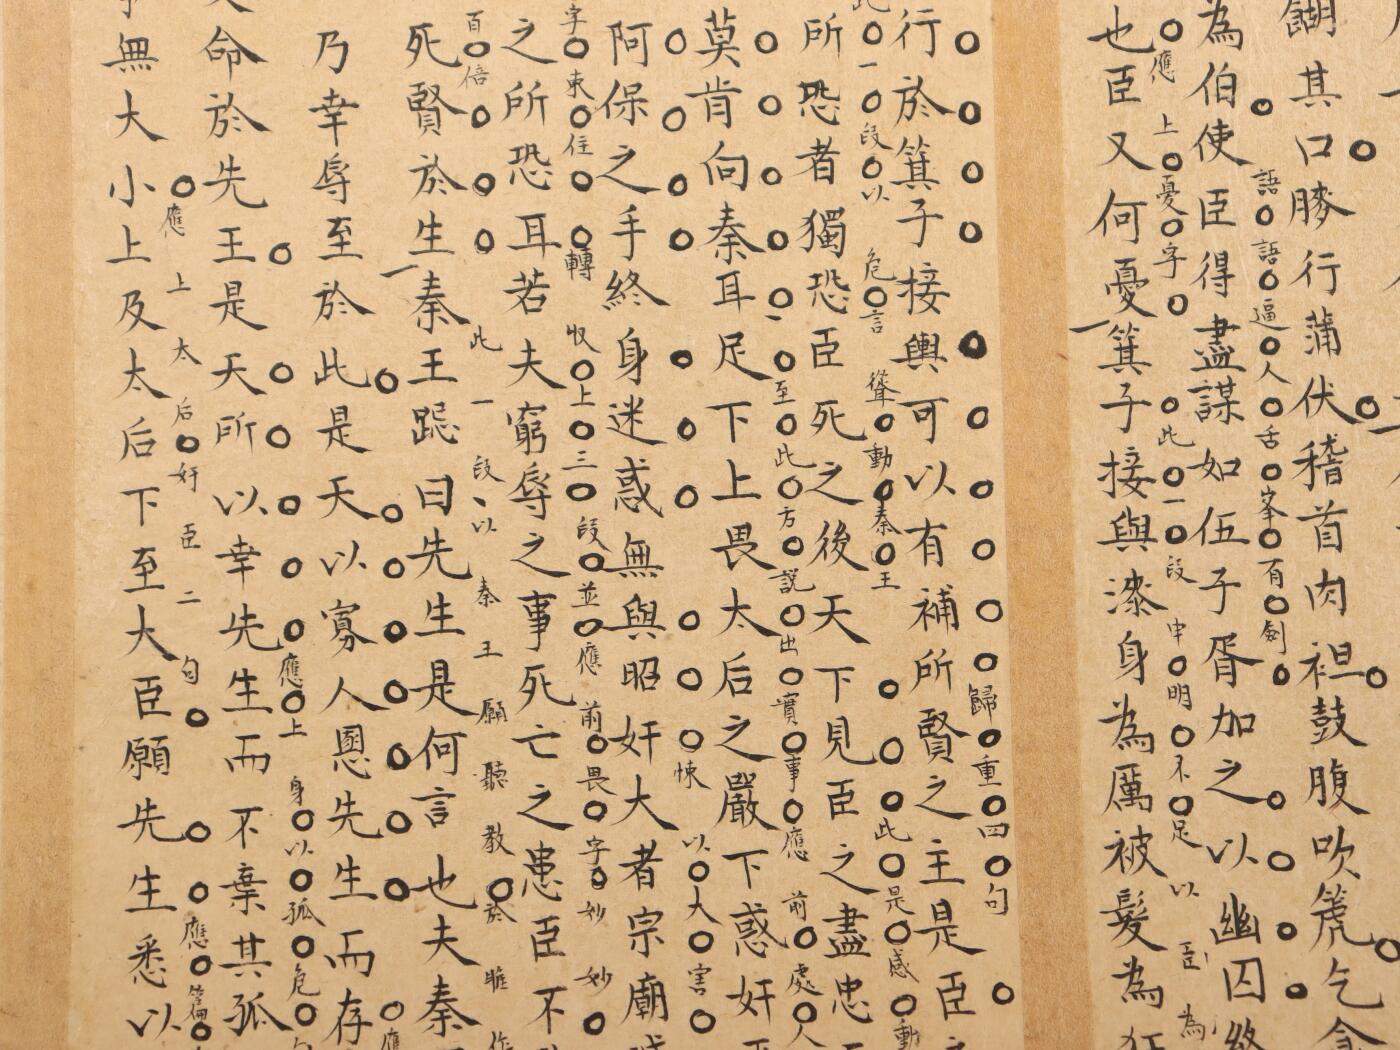 餬其口膝行蒲伏稽首肉袒鼓腹吹篪乞食
語語逼人舌峯有劍
為伯使臣得盡謀如伍子胥加之以幽囚終
應上憂字此一段申明不足以臣為
也臣又何憂箕子接輿漆身為厲被髮為狂
歸重四句
行於箕子接輿可以有補所賢之主是臣之
此一段以危言聳動秦王此是感動
所恐者獨恐臣死之後天下見臣之盡忠
至此方說出實事應前處人
莫肯向秦耳足下上畏太后之嚴下惑奸
悚以大害
阿保之手終身迷惑無與昭奸大者宗廟
字束住轉收上三段並應前畏字妙妙
之所恐耳若夫窮辱之事死亡之患臣不
百倍此一段以秦王願聽教於雎作
死賢於生秦王跽曰先生是何言也夫秦
應
乃幸辱至於此是天以寡人慁先生而存
應上身以孤危句
命於先王是天所以幸先生而不棄其孤
應上太后奸臣二句應篇
無大小上及太后下至大臣願先生悉以